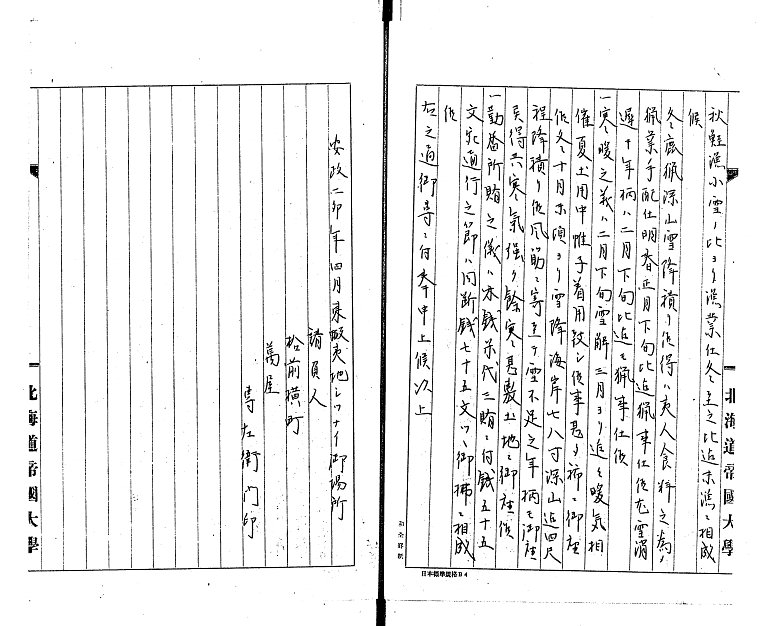 秋鮭漁小雪ノ比ヨリ漁業仕冬至之比迄ニ漁ニ相成
候
冬鹿猟深山雪降積リ候得ハ夷人食料之為ノ
猟業手配仕明春正月下旬比迄猟事仕候尤雪消
遅キ年柄ハ二月下旬比迄モ猟事仕候
一寒暖之義ハ二月下旬雪解三月ヨリ追々暖気相
催夏土用中帷子着用致シ候事甚タ稀ニ御座
候冬ニ十月末頃ヨリ雪降海岸七八寸深山迄四尺
程降積リ候風筋ニ寄至テ雪不足之年柄モ御座
候得共寒気強ク餘寒甚敷土地ニ御座候
一勤番所賄之儀ハ米銭代三賄ニ付銭五十五
文宛通行之節ハ同断銭七十五文ツヽ御拂ニ相成
候
右之通御尋ニ付奉申上候以上
北海道帝國大學
日本標準規格B4
安政二卯年四月東蝦夷地シツナイ御場所
請負人
松前横町
萬屋
専左衛門印
北海道帝國大學